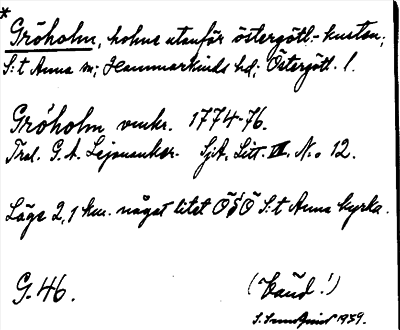 *
Gröholm, holme utanför östergötl.-kusten;
S:t Anna sn; Hammarkinds hd; Östergötl. l.
Gröholm omkr. 1774-76.
Trol. G. A. Lejonanker. Sjk. Litt. III. No 12.
Läge 2,1 km. något litet ÖSÖ S:t Anna kyrka.
G. 46.
S. Sundqvist 1939.